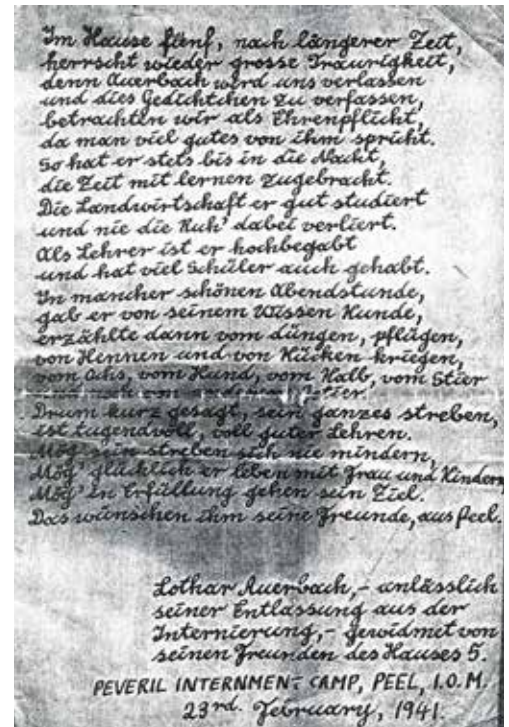 Im Hause fünf, nach längerer Zeit,
herrscht wieder grosse Traurigkeit,
denn Auerbach wird uns verlassen
und dies Gedichtchen zu verfassen,
betrachten wir als Ehrenpflicht,
da man viel gutes von ihm spricht.
So hat er stets bis in die Nacht,
die Zeit mit lernen zugebracht.
Die Landwirtschaft er gut studiert
und nie die Ruh' dabei verliert.
Als Lehrer ist er hochbegabt
und hat viel Schüler auch gehabt.
In mancher schönen Abendstunde,
gab er von seinem Wissen Kunde,
erzählte dann vom düngen, pflügen,
von Hennen und von Kücken kriegen,
vom Ochs, vom Hund, vom Kalb, vom Stier
und noch von
Drum kurz gesagt, sein ganzes streben,
ist tugendvoll, voll guter Lehren.
Mög' sein streben sich nie mindern,
Mög' glücklich er leben mit Frau und Kindern,
Mög' in Erfüllung gehen sein Ziel.
Das wünschen ihm seine Freunde, aus Peel.
Lothar Auerbach,- anlässlich
seiner Entlassung aus der
Internierung,- gewidmet von
seinen Freunden des Hauses 5.
PEVERIL INTERNMENT CAMP, PEEL, I.O.M.
23rd. February, 1941